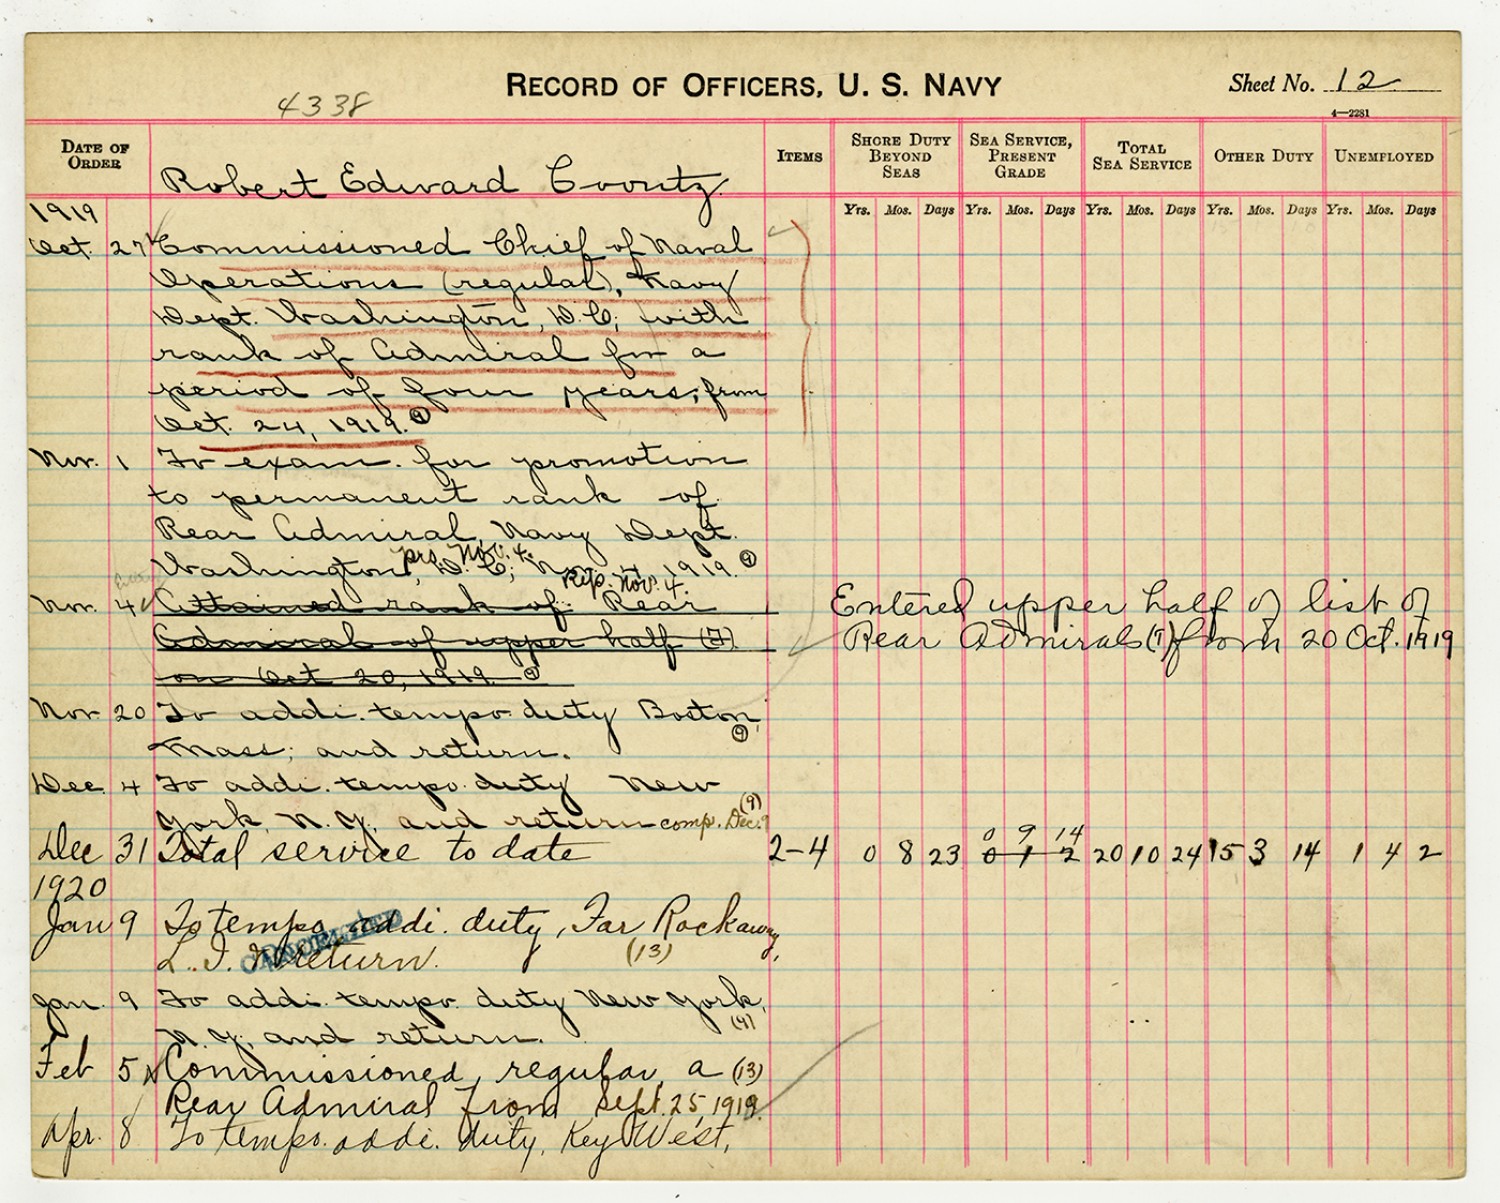 4338
RECORD OF OFFICERS, U. S. NAVY
Sheet No. 12
4—2281
DATE OF ORDER
Robert Edward Coontz.
ITEMS
SHORE DUTY BEYOND SEAS
SEA SERVICE, PRESENT GRADE
TOTAL SEA SERVICE
OTHER DUTY
UNEMPLOYED
Yrs. Mos. Days Yrs. Mos. Days Yrs. Mos. Days Yrs. Mos. Days Yrs. Mos. Days
1919
Oct. 27 Commissioned Chief of Naval
Operations (regular), Navy
Dept. Washington, D.C; with
rank of Admiral for a
period of four years, from
Oct. 24, 1919. (9)
Nov. 1 To exam. for promotion
to permanent rank of
Rear Admiral, Navy Dept.
prs. Nov. 4.
Washington, D. C; Nov. 4, 1919. (9)
Rep. Nov. 4.
Nov. 4 Attained rank of Rear
Admiral of upper half (T)
on Oct 20, 1919. (9)
Entered upper half of list of
Rear Admirals (T) from 20 Oct. 1919
Nov. 20 To addi. tempo. duty Boston,
Mass; and return. (9)
Dec. 4 To addi. tempo. duty New
York, N. Y. and return comp. Dec. 9 (9)
0 9 14
Dec 31 Total service to date 2-4 0 8 23 0 1 2 20 10 24 15 3 14 1 4 2
1920
Jan 9 To tempo. addi. duty, Far Rockaway,
L. I. & return. (13)
CANCELLED
Jan. 9 To addi. tempo. duty New York,
N. Y. and return. (9)
Feb 5 Commissioned, regular, a (13)
Rear Admiral from Sept. 25, 1919.
Apr. 8 To tempo. addi. duty, Key West,